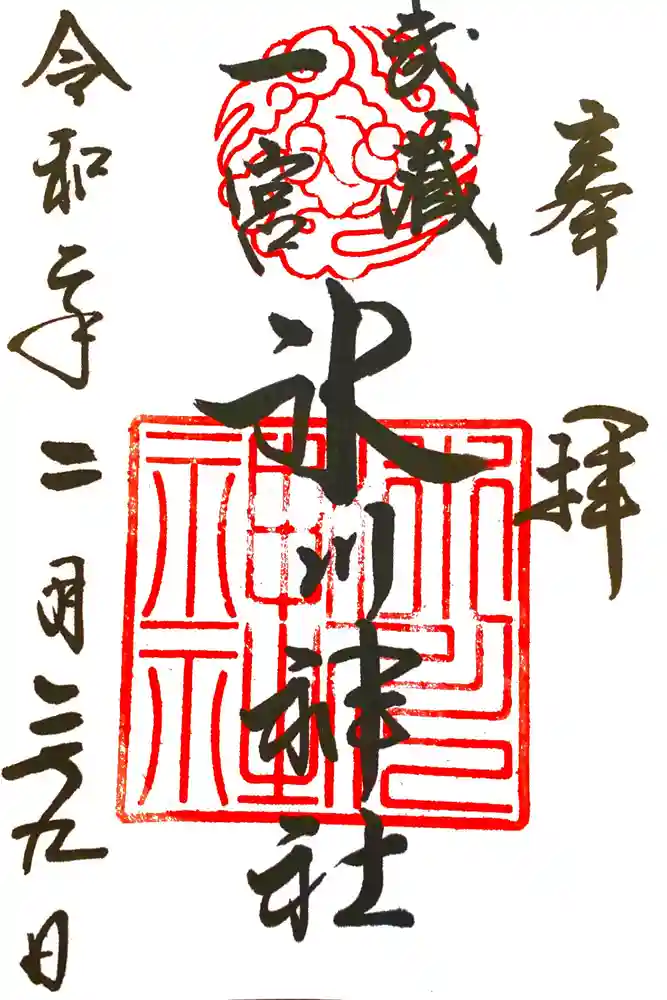 奉拝
武蔵
一宮
氷川神社
氷川
神社
令和二年二月二十九日